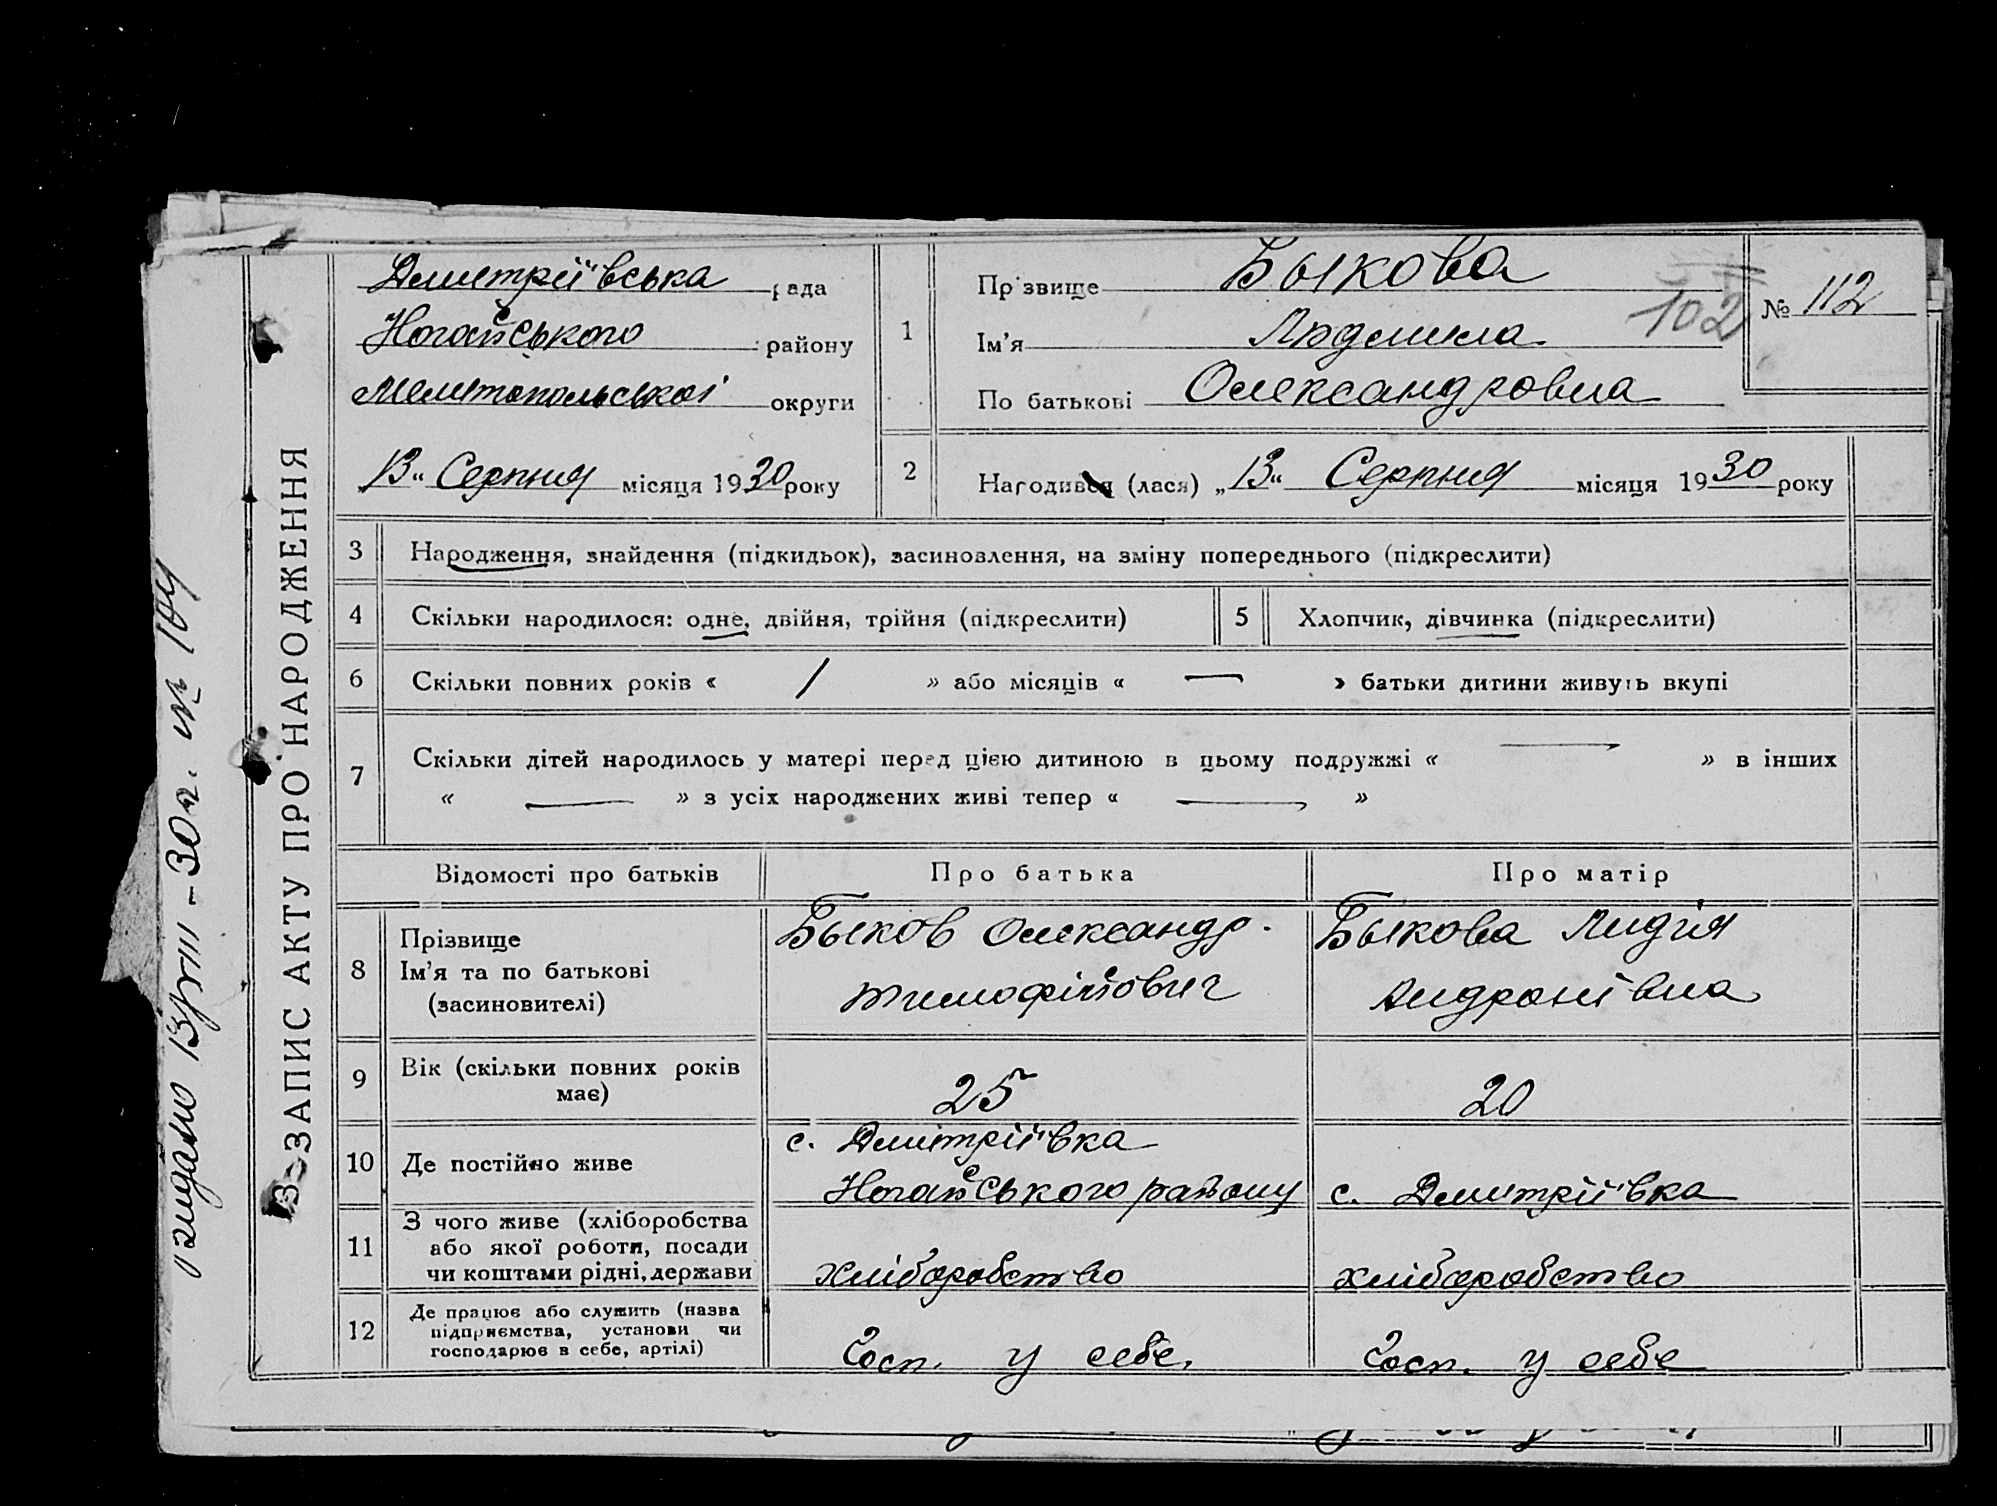 Дмитріївська рада
Ногайського району
Мелітопольської округи
„13“ Серпня місяця 1930 року
1
Прізвище Быкова
Ім’я Людмила
По батькові Олександровна
102
№ 112
2
Народився (лася) „13“ Серпня місяця 1930 року
3 Народження, знайдення (підкидьок), засиновлення, на зміну попереднього (підкреслити)
4 Скільки народилося: одне, двійня, трійня (підкреслити) 5 Хлопчик, дівчинка (підкреслити)
6 Скільки повних років « 1 » або місяців « — » батьки дитини живуть вкупі
7 Скільки дітей народилось у матері перед цією дитиною в цьому подружжі « — » в інших
« — » з усіх народжених живі тепер « — »
Відомості про батьків Про батька Про матір
8 Прізвище
Ім’я та по батькові
(засиновителі)
Быков Олександр.
Тимофійович
Быкова Лидія
Андронівна
9 Вік (скільки повних років
має)
25
20
10 Де постійно живе
с. Дмитріївка
Ногайського району
с. Дмитріївка
11 З чого живе (хліборобства
або якої роботи, посади
чи коштами рідні, держави
хліборобство
хліборобство
12 Де працює або служить (назва
підприємства, установи чи
господарює в себе, артілі)
Госп. у себе.
Госп. у себе
ЗАПИС АКТУ ПРО НАРОДЖЕННЯ
видано 13/VIII-30 р. № 104